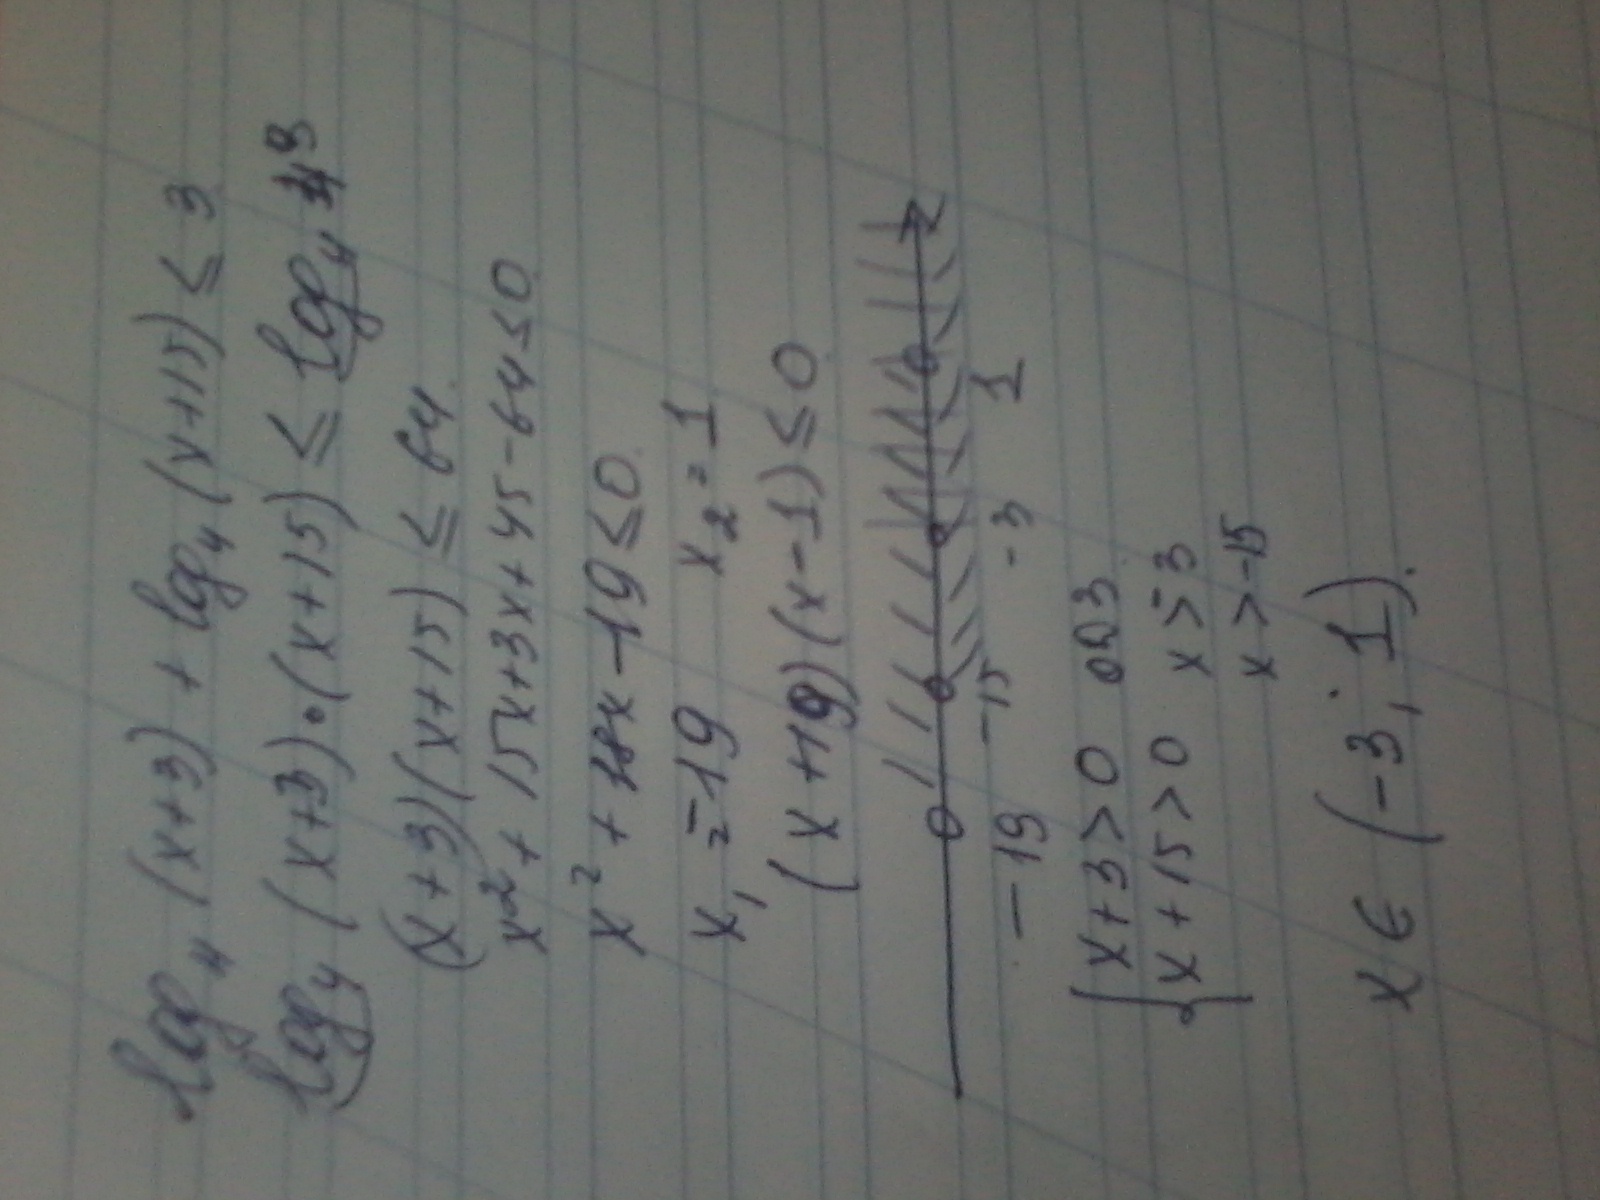 log₄(x+3) + log₄(x+15) ≤ 3
log₄(x+3)·(x+15) ≤ log₄ 4³
(x+3)(x+15) ≤ 64.
x² + 15x+3x+45-64≤0
x² + 18x-19≤0.
x₁ = -19 x₂ = 1
(x+19)(x-1)≤0
-19 -15 -3 1
{x+3>0 ОДЗ
{x+15>0 x>-3
x>-15
x ∈ (-3; 1).